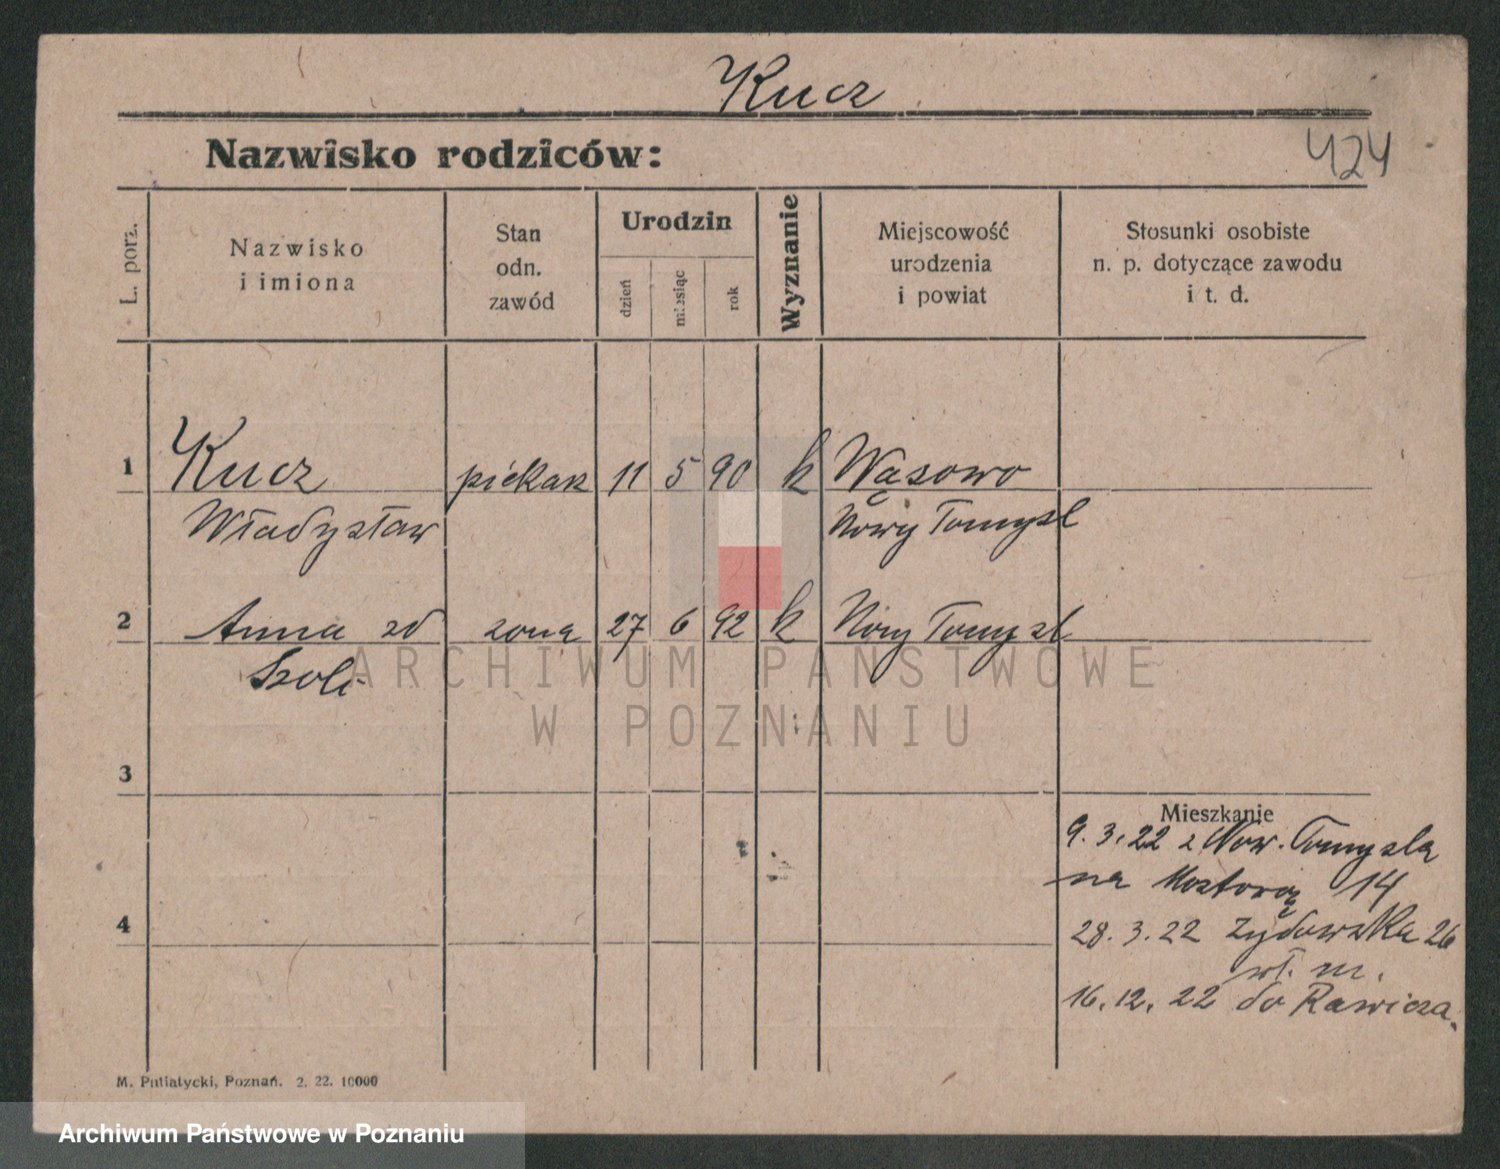 Kucz
424
Nazwisko rodziców:
L. porz.
Nazwisko
i imiona
Stan
odn.
zawód
Urodzin
dzień
miesiąc
rok
Wyznanie
Miejscowość
urodzenia
i powiat
Stosunki osobiste
n. p. dotyczące zawodu
i t. d.
1 Kucz piekarz 11 5 90 k Wąsowo
Władysław Nowy Tomyśl
2 Anna zd żona 27 6 92 k Nowy Tomyśl
Szolc
ARCHIWUM PAŃSTWOWE
W POZNANIU
3
Mieszkanie
9.3.22 z Now. Tomyśla
na 14
4
28.3.22 Żydowska 26
wł. m.
16.12.22 do Rawicza.
M. Putiatycki, Poznań. 2. 22. 10000
Archiwum Państwowe w Poznaniu